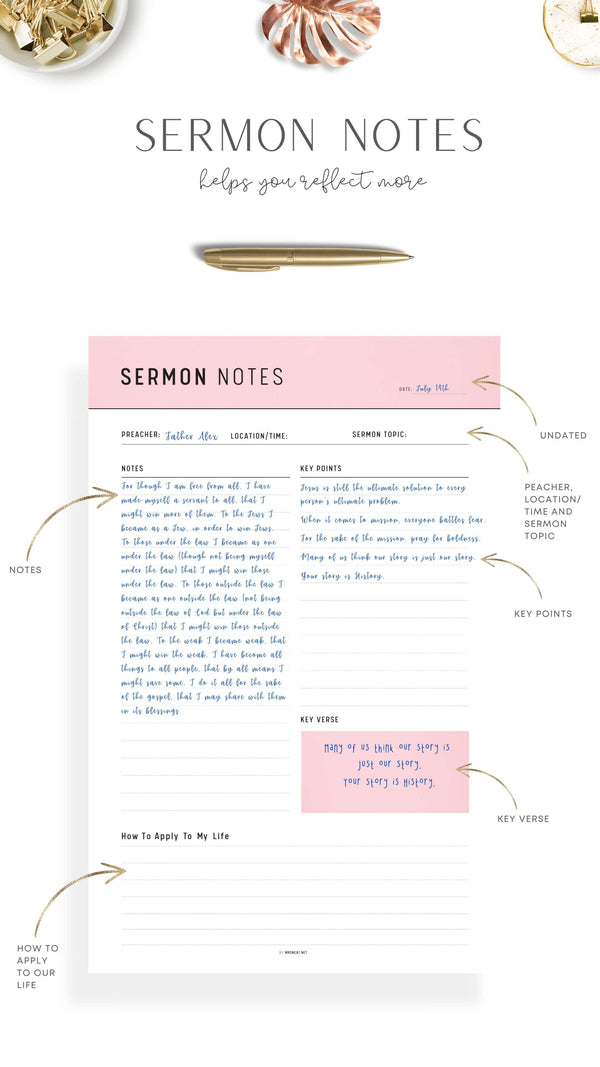 SERMON NOTES
helps you reflect more
SERMON NOTES
DATE: July 19th
UNDATED
PREACHER: Father Alex LOCATION/TIME: SERMON TOPIC:
PEACHER,
LOCATION/
TIME AND
SERMON
TOPIC
NOTES
For though I am free from all, I have
made myself a servant to all, that I
might win more of them. To the Jews I
became as a Jew, in order to win Jews.
To those under the law I became as one
under the law (though not being myself
under the law) that I might win those
under the law. To those outside the law I
became as one outside the law (not being
outside the law of God but under the law
of Christ) that I might win those outside
the law. To the weak I became weak, that
I might win the weak. I have become all
things to all people, that by all means I
might save some. I do it all for the sake
of the gospel, that I may share with them
in its blessings
NOTES
KEY POINTS
Jesus is still the ultimate solution to every
person's ultimate problem.
When it comes to mission, everyone battles fear.
For the sake of the mission, pray for boldness.
Many of us think our story is just our story.
Your story is History.
KEY POINTS
KEY VERSE
Many of us think our story is
just our story.
Your story is History.
KEY VERSE
How To Apply To My Life
HOW TO
APPLY
TO OUR
LIFE
BY MRSNEAT.NET